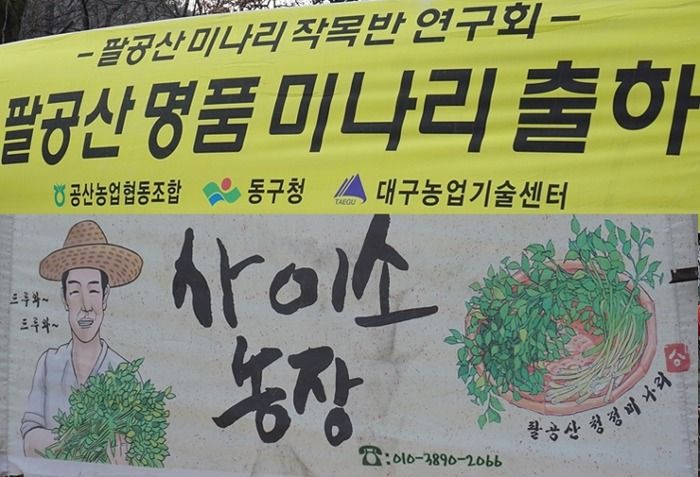 - 팔공산 미나리 작목반 연구회 -
팔공산 명품 미나리 출하
공산농업협동조합 동구청 TAEGU 대구농업기술센터
드루와~
드루와~
사이소
농장
팔공산 청정미나리
☎:010-3890-2066